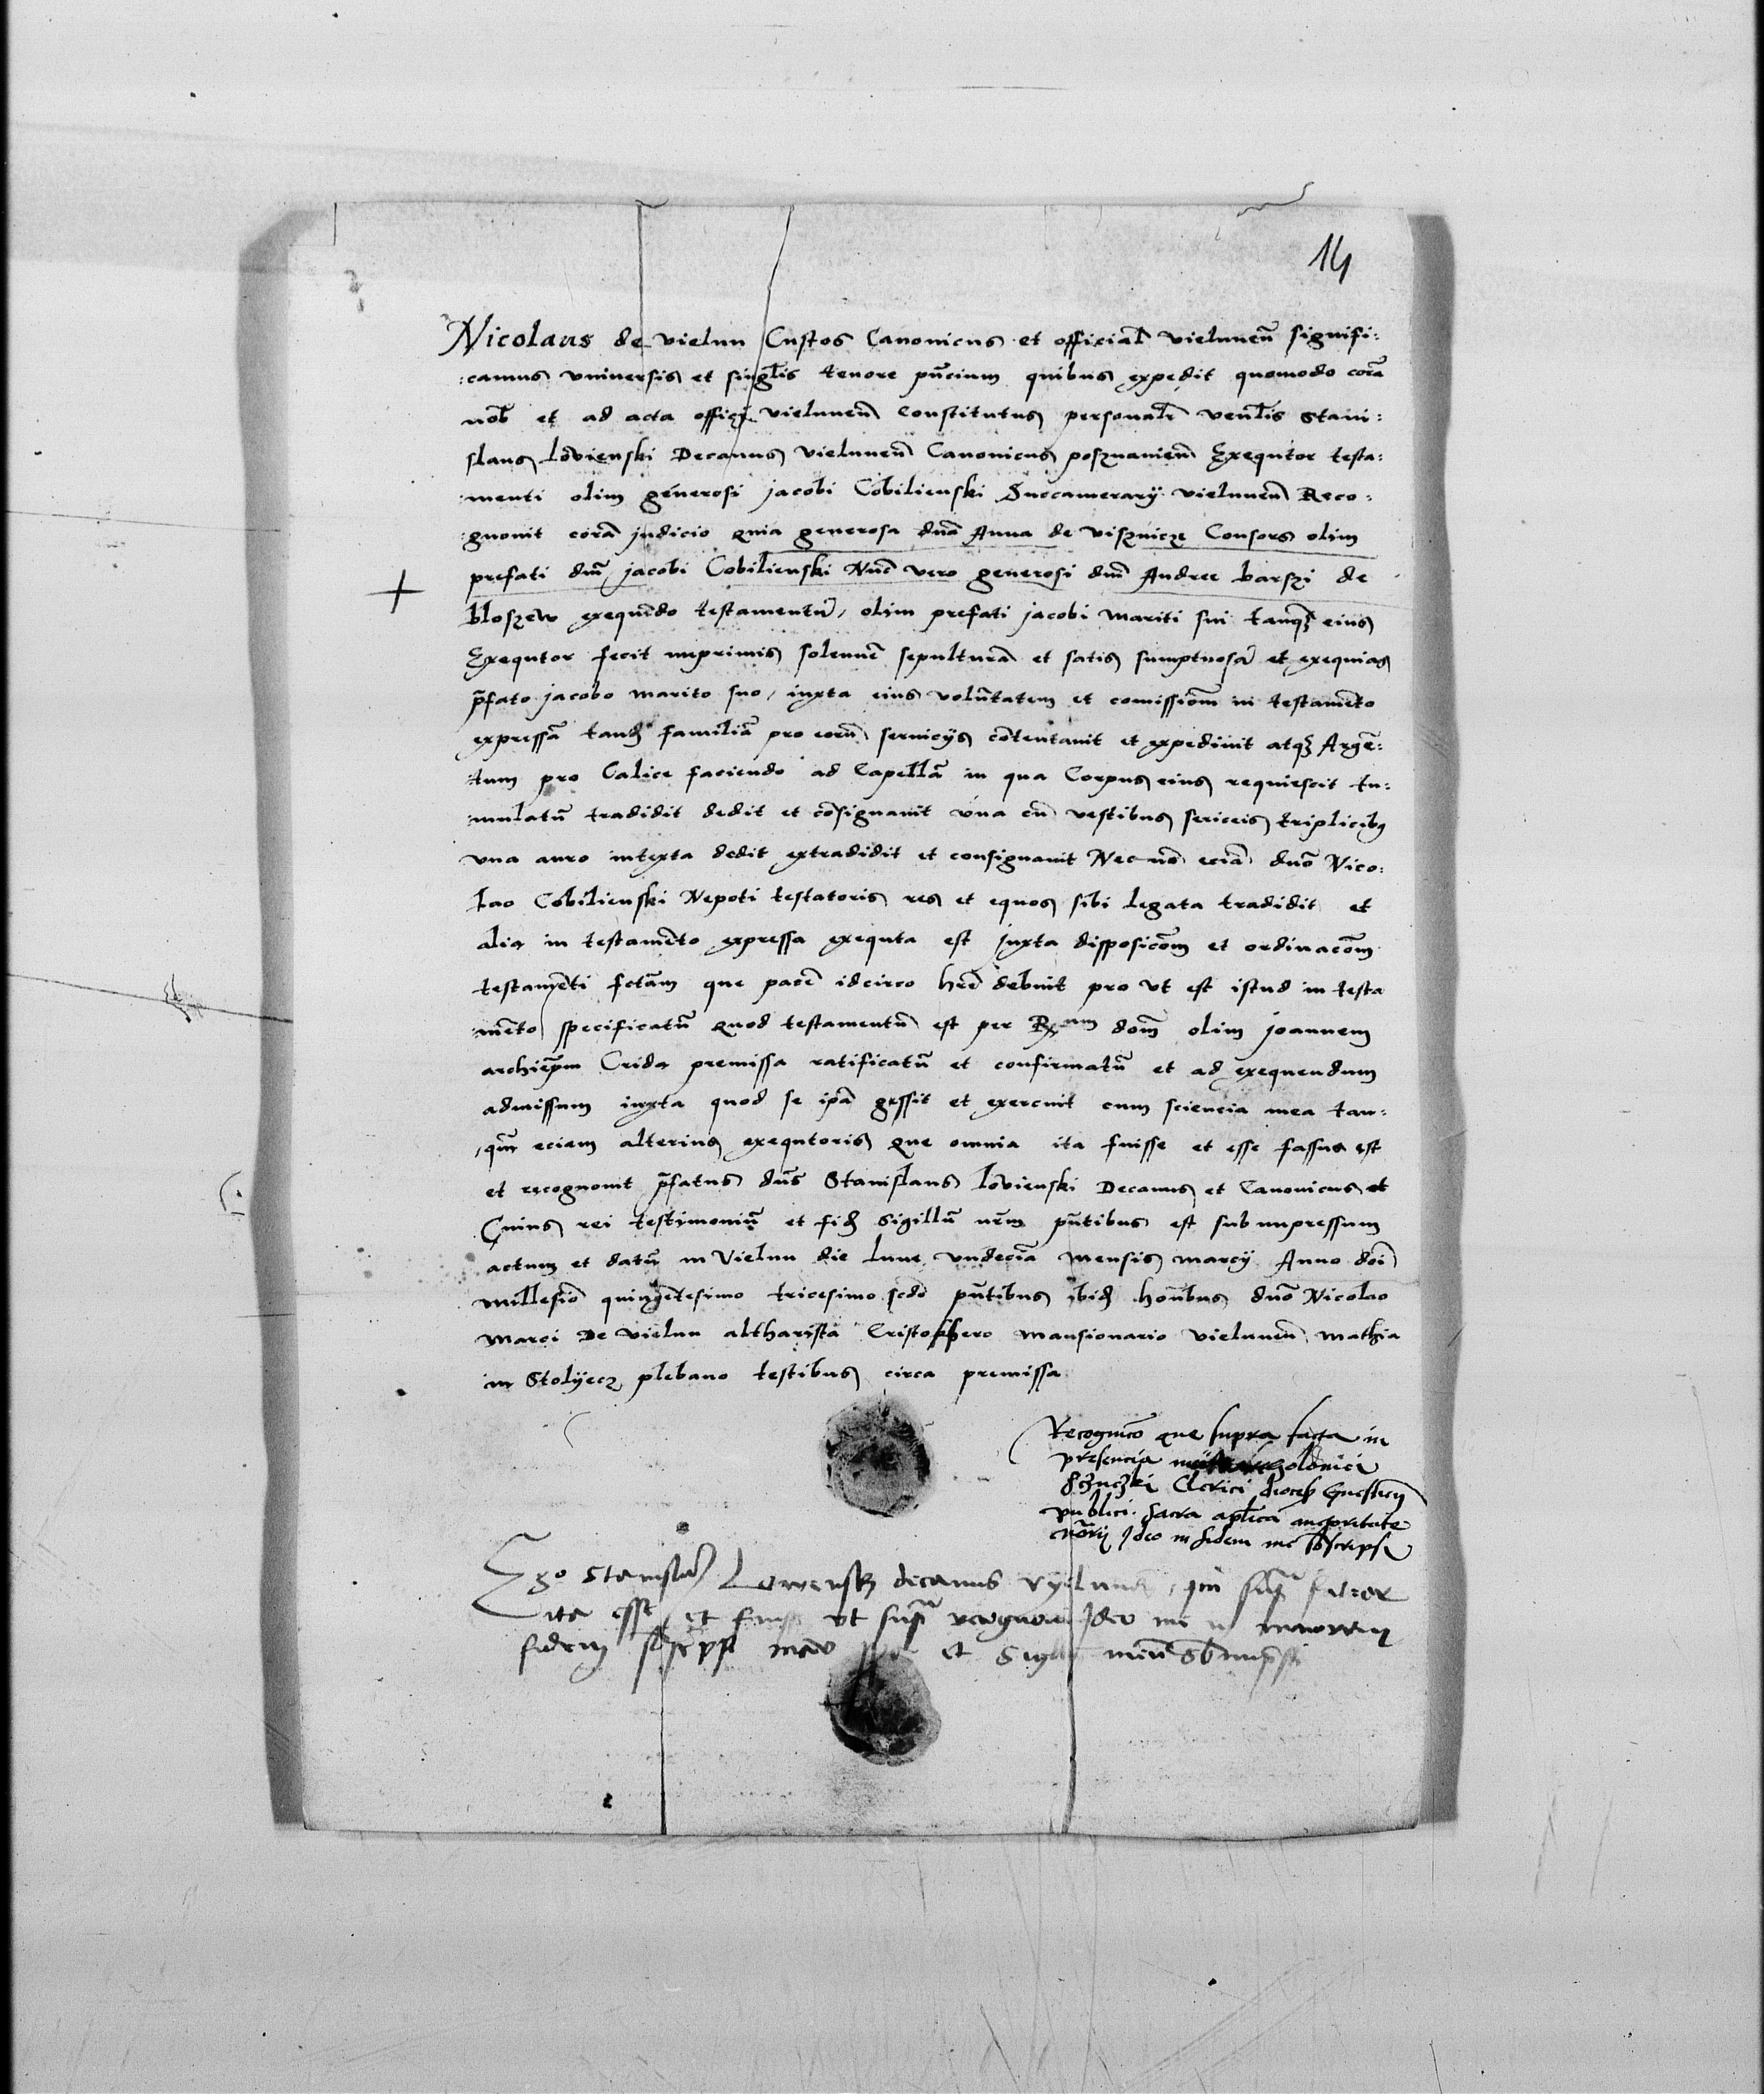 14
Nicolaus de vielun Custos Canonicus et official̄ vielunen̄ signifi:
:camus vniversis et singl̄is tenore pn̄cium quibus expedit quomodo corā
nob̄ et ad acta officÿ vielunen̄ constitutus personalr̄ ven̄lis Stani:
slaus lovienski Decanus vielunen̄ Canonicus posznanien̄ Exequtor testa:
:menti olim generosi jacobi Cobilienski Succamerarÿ vielunen̄ Reco:
:gnouit corā judicio quia generosa dn̄a Anna de viszniczę Consors olim
prefati dn̄i jacobi Cobilienski Nūc vero generosi dn̄i Andree barszi de
bloszew exequēdo testamentū olim prefati jacobi mariti sui tanqz̄ eius
Exequtor fecit inprimis solennē sepulturā et satis sumptuosā et exequias
p̄fato jacobo marito suo iuxta eius volūtatem et comissiom̄ in testamēto
expressā tand̄ familiā pro eorū seruicÿs cōtentauit et expediuit atqz Argē:
:tum pro Calice faciendo ad Capellā in qua Corpus eius requiescit tu:
:mulatū tradidit dedit et cōsignauit vna cū vestibus sericeis triplicibq
vna auro intexta dedit extradidit et consignauit Nec nō eciā dn̄o Nico:
lao Cobilienski Nepoti testatoris res et equos sibi legata tradidit et
alia in testamēto expressa exequta est juxta disposicōm et ordinacōm
testamēti fctām que pacē idcirco hr̄e debuit pro vt est istud in testa
:mēto specificatū quod testamentū est per R̄xum dom̄ olim joannem
archiep̄m Crida premissa ratificatū et confirmatū et ad exequendum
admissum iuxta quod se ip̄a gessit et exercuit cum sciencia mea tan:
:qm̄ eciam alterius exequtoris que omnia ita fuisse et esse fassus est
et recognouit p̄fatus dn̄s Stanislaus lovienski Decanus et Canonicus et
Cuius rei testimoniū et fid̄ sigillū nr̄m pn̄tibus est sub inpressum
actum et datū in Vielun die lune vndecīa mensis marcÿ Anno doī
millesīo quingētesimo tricesimo scd̄o pn̄tibus ibid̄ honb̄us dn̄o Nicolao
marci De vielun altharista Cristoffero mansionario vielunen̄ mathia
in Stolÿecz plebano testibus circa premissa
Recognicō que supra facta in
presencia
Clerici dioces̄ Gneznen̄
publici sacra apl̄ica auctoritate
nōrÿ Ideo in fidem me sb̄scripsi
Ego Stanislaus Lowensky decanus vÿelunen̄ qm̄ supra
ita esse et fuisse vt supra recognoui Ideo me in
fidem sb̄scripsi manu et Sigillū meū sb̄impressi